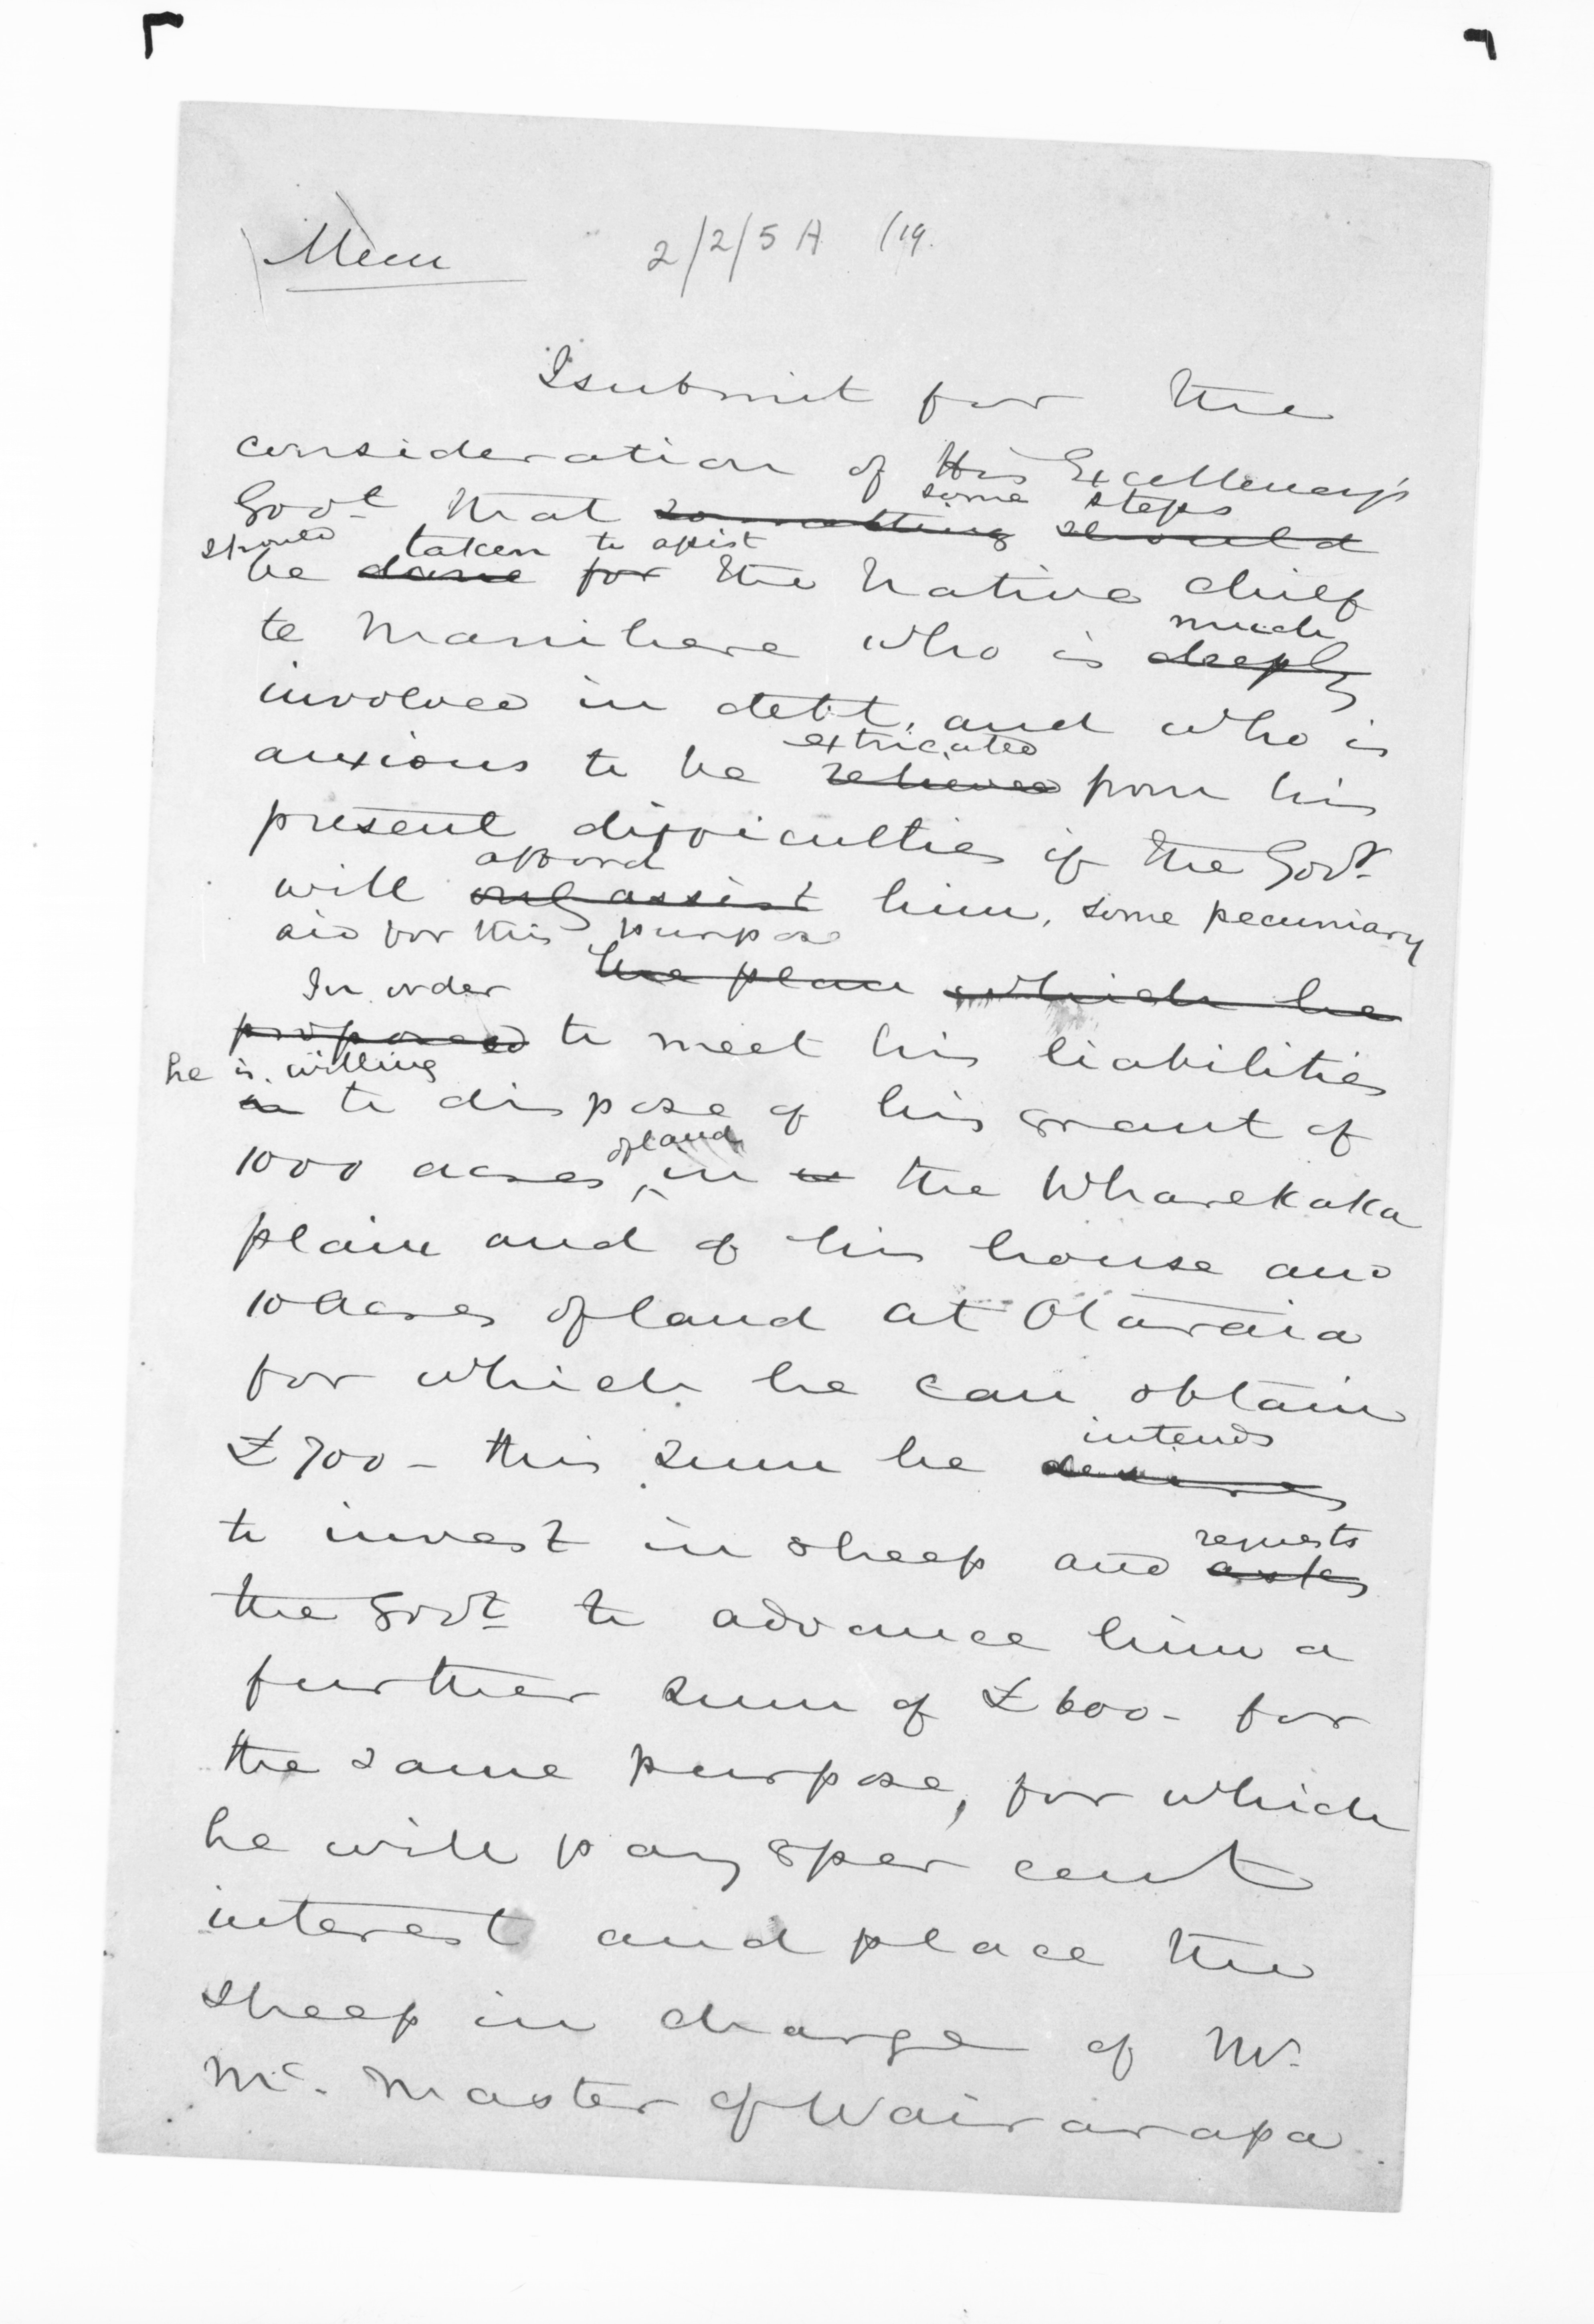 Mem 2/2/5A (19.
I submit for the
consideration of His Excellency's
some steps
Govt that something should
should taken to assist
be done for the Native chief
much
te Manihera who is deeply
involved in debt, and who is
extricated
anxious to be relieved from his
present difficulties if the Govt
afford
will only assist him, some pecuniary
aid for this purpose
In order the plan which he
proposed to meet his liabilities
he is willing
is to dispose of his grant of
of land
1000 acres, in in the Wharekaka
plain and of his house and
10 acres of land at Otaraia
for which he can obtain
intends
£700 - this sum he desires
to invest in sheep and
requests
asks
the Govt to advance him a
further sum of £600 - for
the same purpose, for which
he will pay 8 per cent
interest and place the
sheep in charge of Mr
Mc. Master of Wairarapa